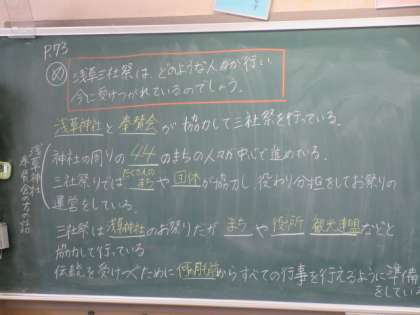 P.73
め 浅草三社祭は、どのような人々が行い
今に受けつがれているのでしょう。
浅草神社と奉賛会が協力して三社祭を行っている。
浅草神社
奉賛会の方の話
神社の周りの44のまちの人々が中心で進めている。
三社祭りではたくさんのまちや団体が協力し、役わり分担をしてお祭りの
運営をしている。
三社祭は浅草神社のお祭りだが まちや役所 観光連盟などと
協力して行っている
伝統を受けつぐために からすべての行事を行えるように準備
をしている